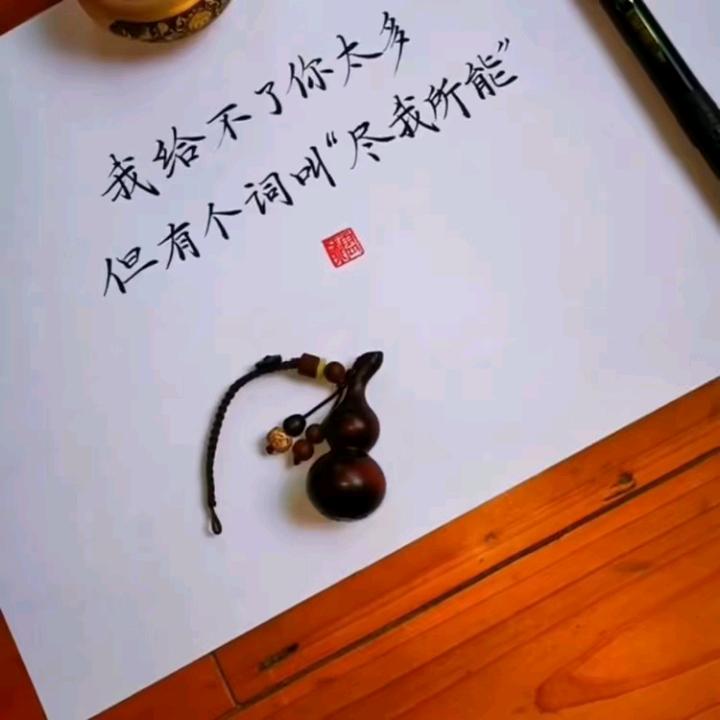 我给不了你太多
但有个词叫“尽我所能”